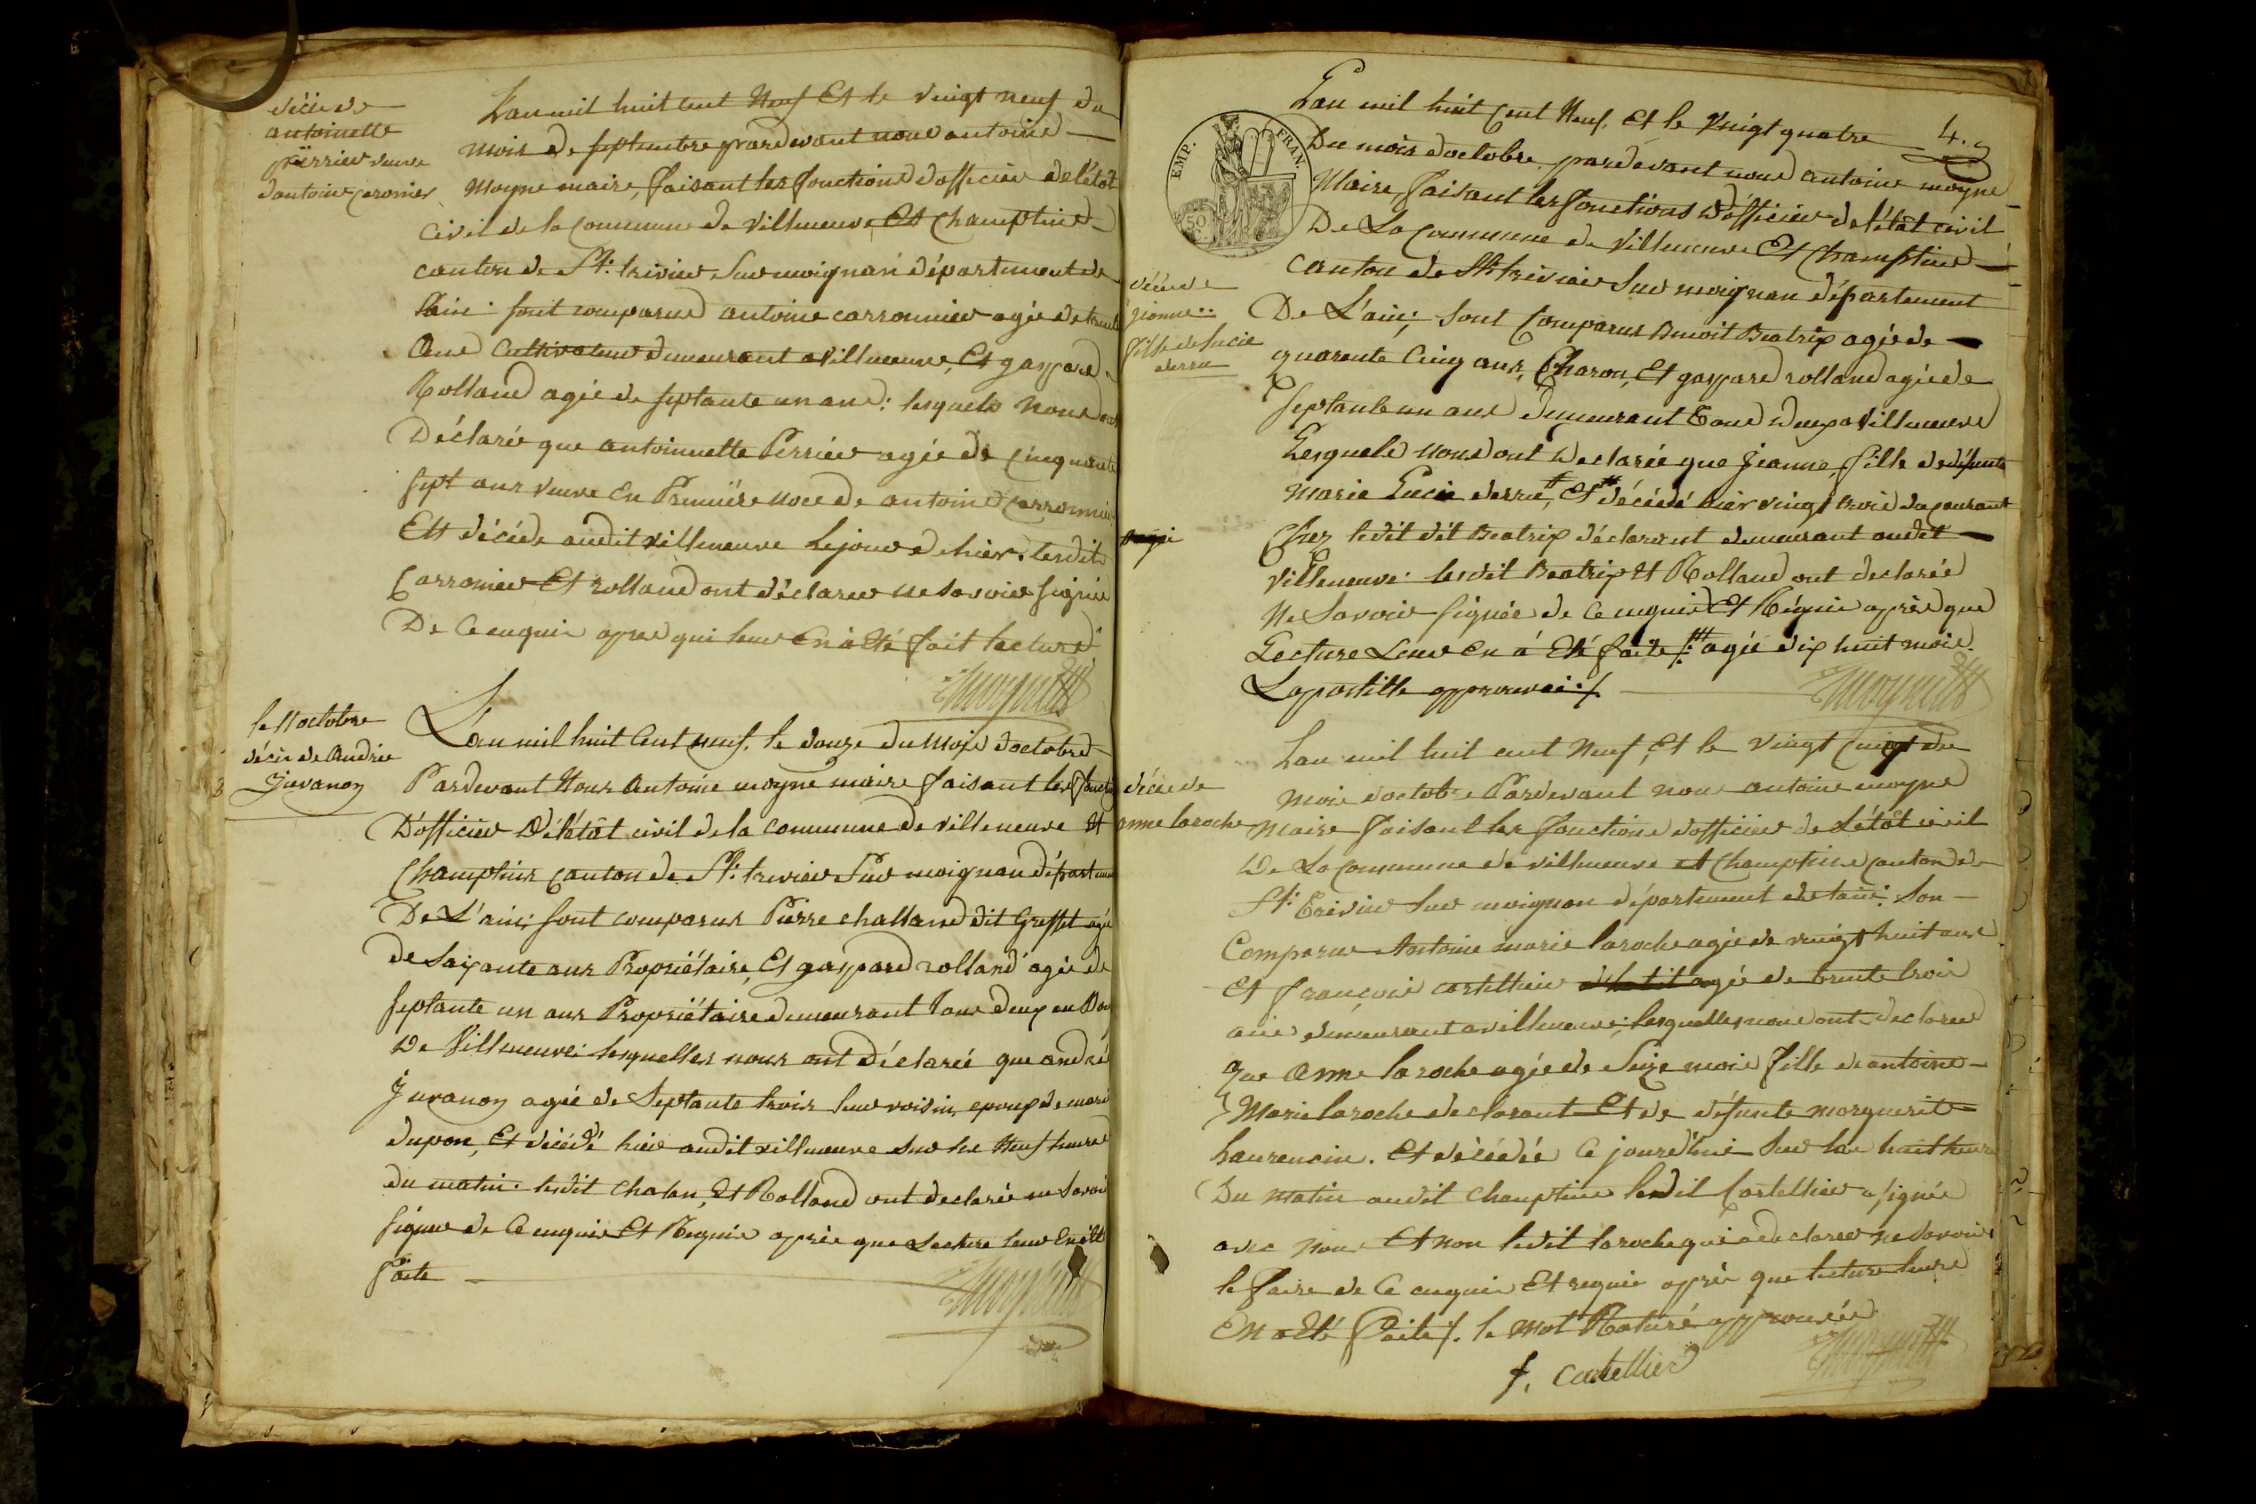 décès de
antoinette
përrier veuve
dantoine caronier
Lan mil huit cent Neuf Et le vingt neuf du
mois de septembre pardevant nous antoine
moyne maire, faisant les fonctions dofficier de létât
civil de la commune de villeneuve Et Champtins
canton de St. trivier Sur moignan département de
lain: sont comparus antoine carronnier agée de
ans Cultivateur demeurant a villneuve, Et gaspard
Rolland agée de septante un ans: lesquels nous ont
Déclarée que antoinette Perrier agée de cinquante
sept ans veuve En Premiére noce de antoine Carronnier
Ett décéde audit villeneuve le jour de hier. lesdits
Carronier Et rolland ont déclarer ne savoir signée
De Ce enquis apres qui leur En a Eté fait lecture
le 11 octobre
décès de André
Juvanon
3
L'an mil huit Cent neuf. le douze du Mois doctobre
Pardevant Nous Antoine moyne maire faisant les fonctions
D'officier Délétât civil de la commune de villeneuve Et
Champtins canton de St. trevier Sur moignan départemen
De L'ain; sont comparus Pierre challand dit Greffet agé
de Soixante ans Propriétaire, Et gaspard rolland agée de
septante un ans Propriétaire demeurant tous deux au Bourg
De Villneuve: lesquelles nous ont déclarée que andré
Juvanon agée de Septante trois leur voisin, epoux de marie
dupon, Et décédé hier audit villneuve sur les Neuf heures
du matin. lesdit Chalan, Et Rolland ont declarée ne Savoir
signer de Ce enquis Et Requis après que Lecture leur En a Eté
faite
4. g
EMP. FRAN.
50
décès de
jeanne
fille de lucie
derru
Lan mil huit Cent Neuf. Et le Vingt quatre
Du mois doctobre pardevant nous antoine moyne
Maire, faisant les fonctions D'officier de létât civil
De La Commune de Villeneuve Et Champtins
canton de St. trivier Sur moignan département
De L'ain; sont Comparus Benoit Beatrix agée de
quarante Cinq ans, Charon, Et gaspard rolland agée de
septante un ans demeurant Tous deux a Villneuve
Lesquels nous ont declarée que jeanne, fille de défunte
Marie Lucie derru, Et décédé hier vingt trois du courant
Chez ledit dit Beatrix déclarant demeurant audit
Villeneuve: lesdit Beatrix Et Rolland ont declarée
Ne Savoir signée de Ce enquis Et Réquis après que
Lecture Leur En á Eté faite /. agée dix huit mois.
Lapostille approuvée ./.
décès de
anne laroche
Lan mil huit cent Neuf, Et le vingt Cinqt du
Mois doctobre Pardevant nous antoine moyne
Maire faisant les fonctions dofficier de Létât civil
De La commune de villneuve et Champtins canton de
St. Trivier Sur moignan département de lain: Son
Comparus Antoine marie laroche agée de vingt huit ans
Et françois cortellier agée de trente trois
ans demeurant a villneuve; lesquelles nous ont declarés
que Anne laroche agée de Seize mois fille de antoine
Marie laroche declarant Et de défunte marguerite
Laurencin. Et décédée Ce jourd'hui Sur les huit heures
Du Matin audit Champtins lesdit Cortellier a signée
avec nous Et non ledit laroche qui a declarer ne Savoir
le faire de Ce enquis Et requis après que lecture leurs
En a Eté faite /. le Mot Raturé approuvée
f. cortellier